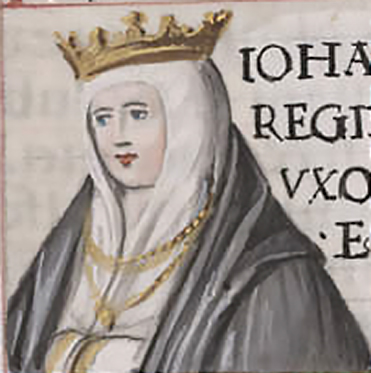 IOHA
REGI
VXO
· E